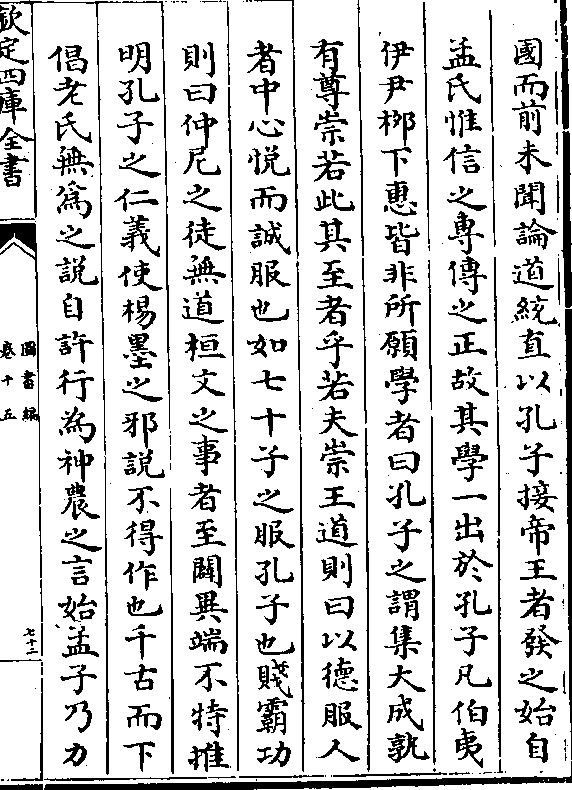 國而前未聞論道統直以孔子接帝王者發之始自
孟氏惟信之專傳之正故其學一出於孔子凡伯夷
伊尹栁下惠皆非所願學者曰孔子之謂集大成孰
有尊崇若此其至者乎若夫崇王道則曰以德服人
者中心悦而誠服也如七十子之服孔子也賤霸功
則曰仲尼之徒無道桓文之事者至闢異端不特推
明孔子之仁義使楊墨之邪說不得作也千古而下
倡老氏無為之説自許行為神農之言始孟子乃力
欽定四庫全書
圖書編
卷十五
七十二